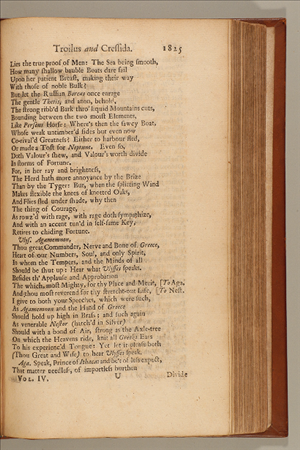 Troilus and Cressida. 1825
Lies the true proof of Men: The Sea being smooth,
How many shallow bauble Boats dare sail
Upon her patient Breast, making their way
With those of noble Bulk?
But let the Ruffian Boreas once enrage
The gentle Thetis, and anon, behold,
The strong ribb'd Bark thro' liquid Mountains cuts,
Bounding between the two moist Elements,
Like Perseus Horse: Where's then the sawcy Boat,
Whose weak untimber'd sides but even now
Co-rival'd Greatness? Either to harbour fled,
Or made a Toste for Neptune. Even so,
Doth Valour's shew, and Valour's worth divide
In storms of Fortune.
For, in her ray and brightness,
The Herd hath more annoyance by the Brize
Than by the Tyger: But, when the splitting Wind
Makes flexible the knees of knotted Oaks,
And Flies fled under shade, why then
The thing of Courage,
As rowz'd with rage, with rage doth sympathize,
And with an accent tun'd in self-same Key,
Retires to chiding Fortune.
Ulys. Agamemnon,
Thou great Commander, Nerve and Bone of Greece,
Heart of our Numbers, Soul, and only Spirit,
In whom the Tempers, and the Minds of all
Should be shut up: Hear what Ulysses speaks.
Besides th' Applause and Approbation
The which, most Mighty, for thy Place and Sway, [To Aga.
And thou most reverend for thy stretcht-out Life, [To Nest.
I give to both your Speeches, which were such,
As Agamemnon and the Hand of Greece
Should hold up high in Brass: and such again
As venerable Nestor (hatch'd in Silver)
Should with a bond of Air, strong as the Axle-tree
On which the Heavens ride, knit all Greeks Ears
To his experienc'd Tongue: Yet let it please both
(Thou Great and Wise) to hear Ulysses speak.
Aga. Speak, Prince of Ithaca: and be't of less expect,
That matter needless, of importless burthen
Vol. IV. U Divide